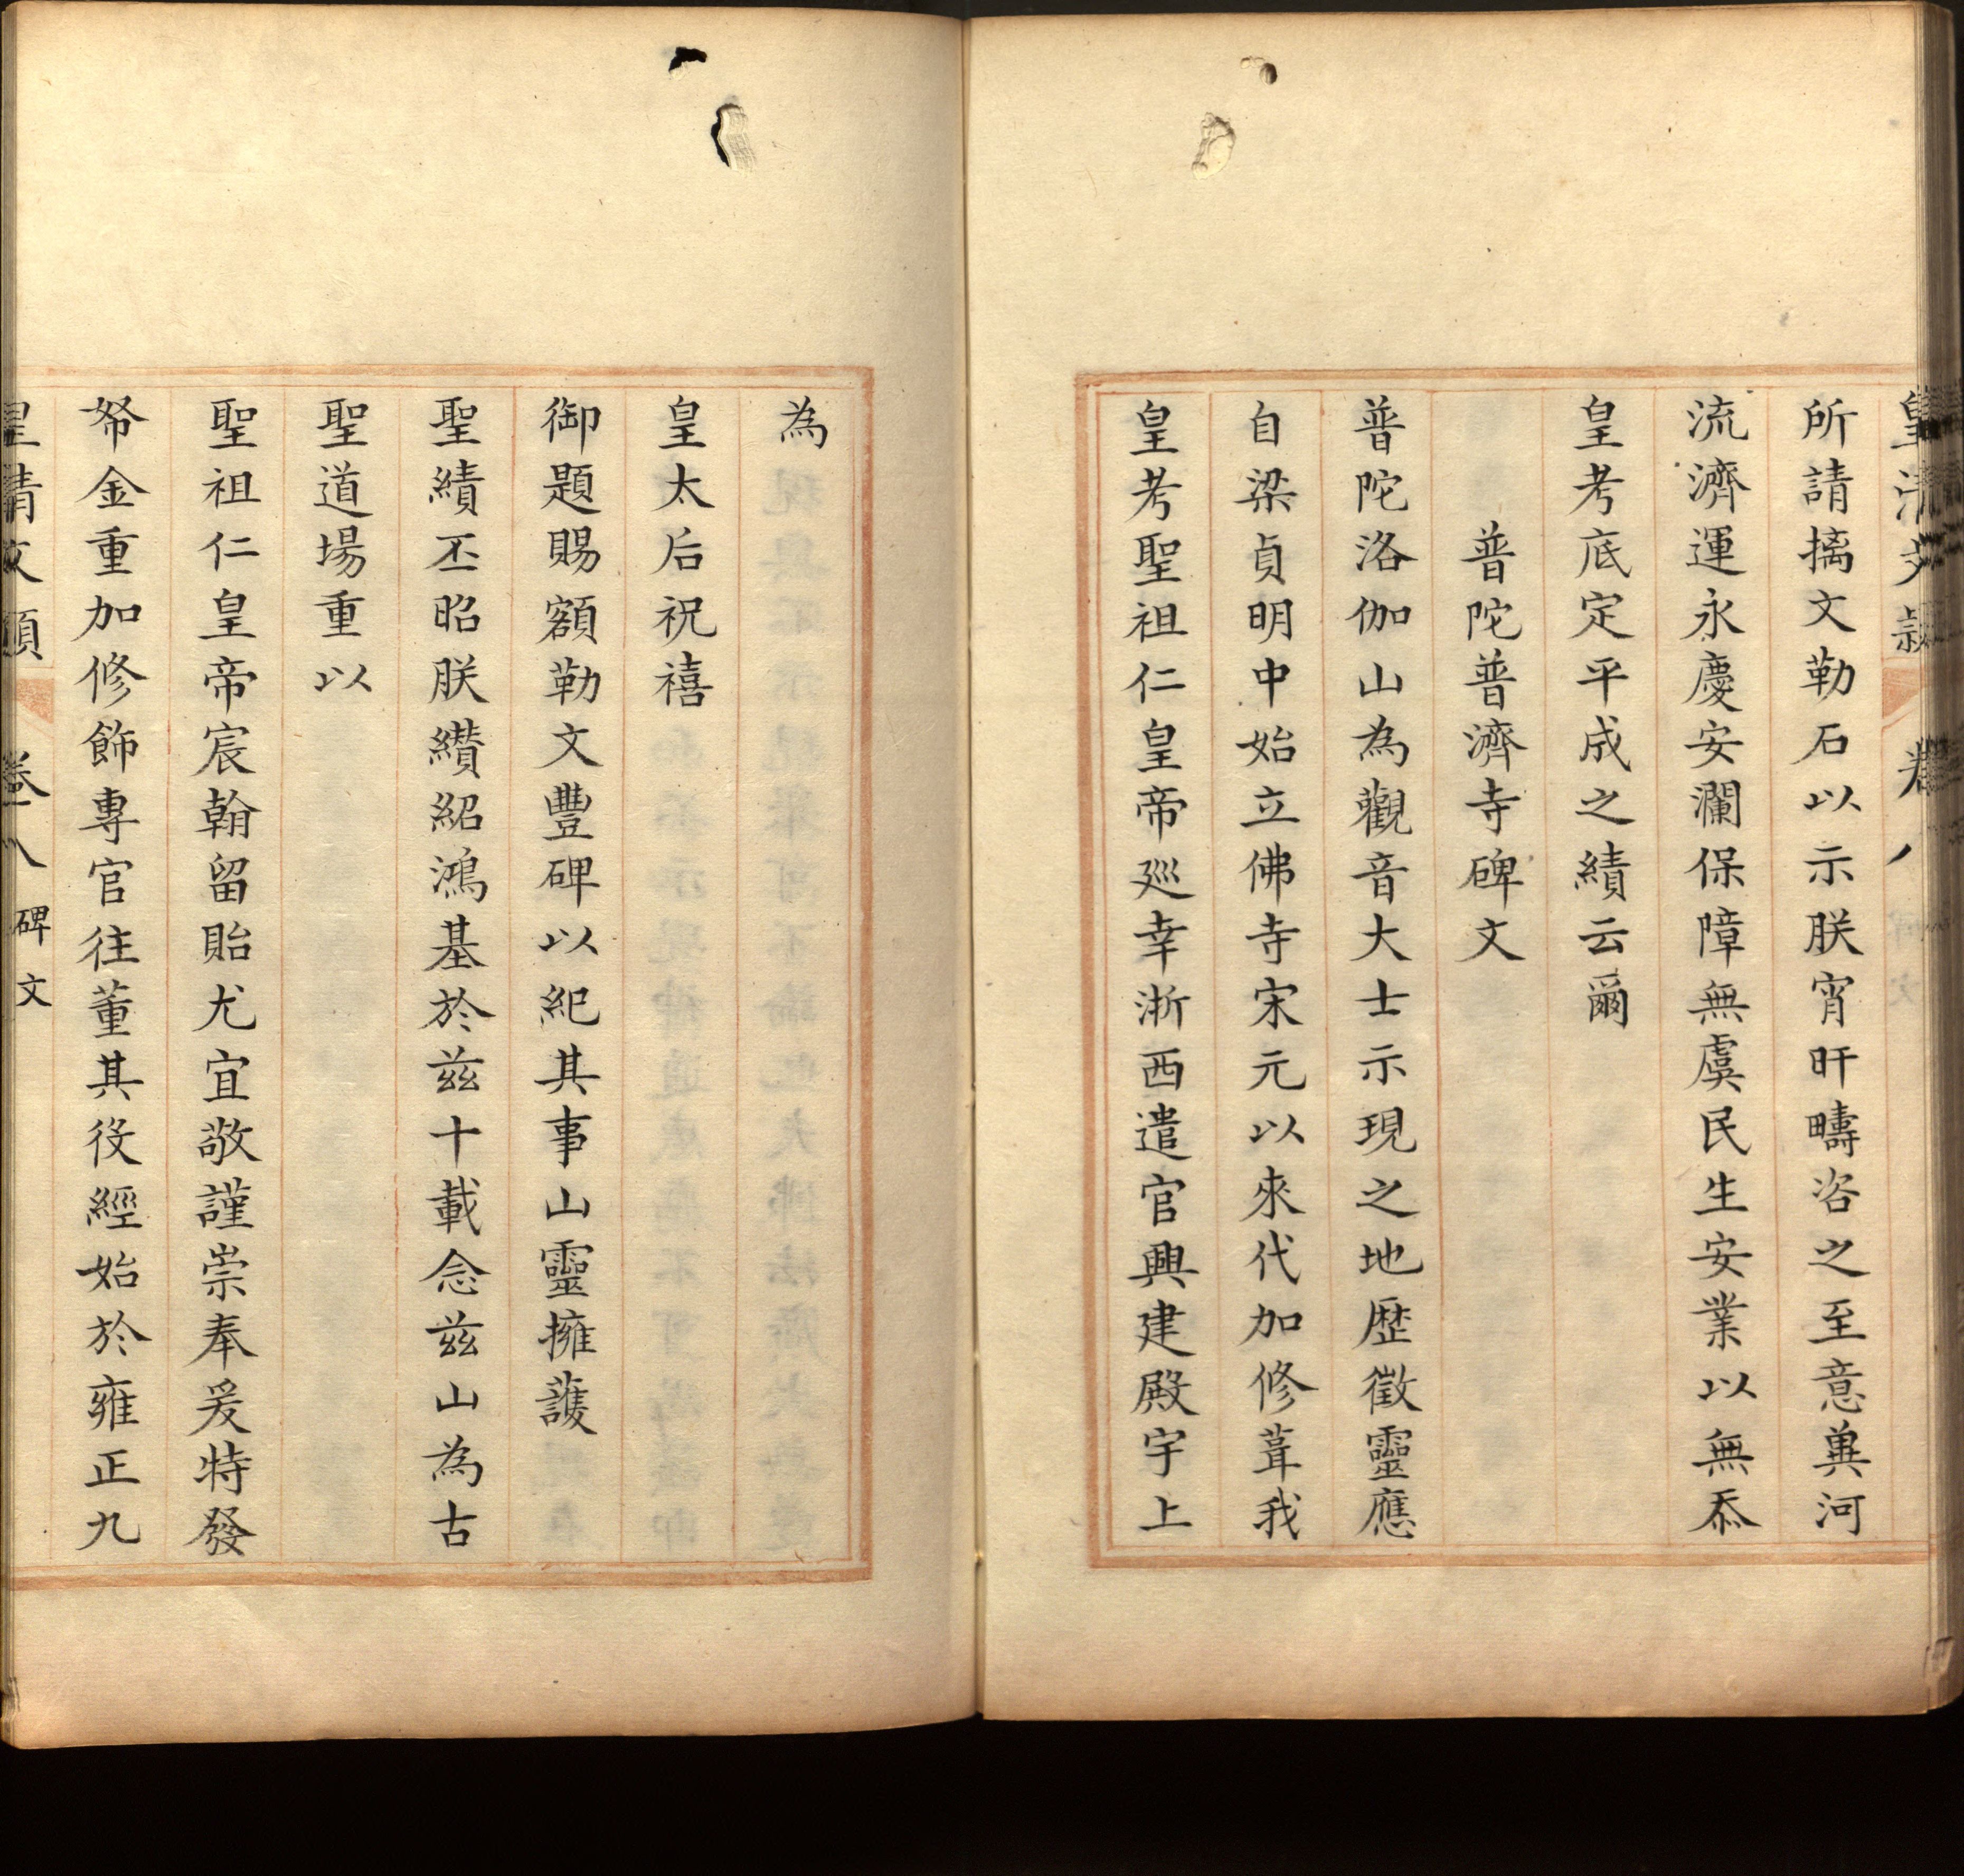 所請摛文勒石以示朕宵旰疇咨之至意兾河
流濟運永慶安瀾保障無虞民生安業以無忝
皇考底定平成之績云爾
普陀普濟寺碑文
普陀洛伽山為觀音大士示現之地歴徵靈應
自梁貞明中始立佛寺宋元以來代加修葺我
皇考聖祖仁皇帝廵幸浙西遣官興建殿宇上
為
皇太后祝禧
御題賜額勒文豐碑以紀其事山靈擁護
聖績丕昭朕纘紹鴻基於兹十載念兹山為古
聖道場重以
聖祖仁皇帝宸翰留貽尤宜敬謹崇奉爰特發
帑金重加修飾專官往董其役經始於雍正九
皇清文頴 卷八 碑文